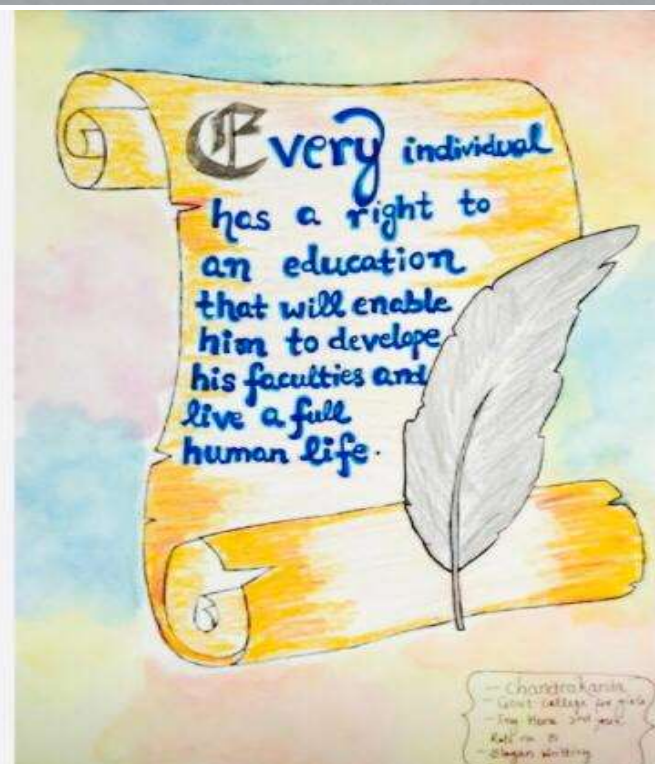 Every individual
has a right to
an education
that will enable
him to develope
his faculties and
live a full
human life.
- Chandrakanta
- Govt College for girls
- Eng Hons 2nd year
Roll no
- Slogan Writting